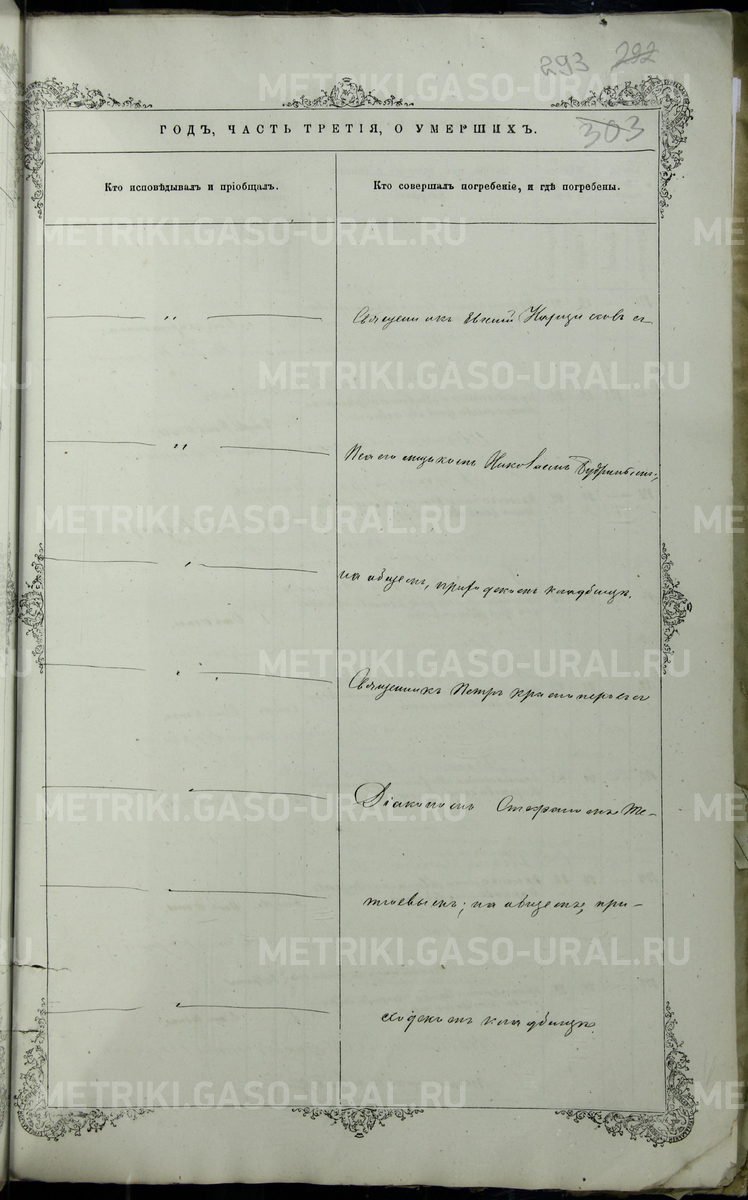 293 292
303
ГОДЪ, ЧАСТЬ ТРЕТІЯ, О УМЕРШИХЪ.
Кто исповѣдывалъ и пріобщалъ.
Кто совершалъ погребеніе, и гдѣ погребены.
— " — Священникъ Евгеній съ
— " — Псаломщикомъ Николаемъ
— " — на общемъ, приходскомъ кладбищѣ.
— " — Священникъ Петръ Красноперовъ съ
— " — Діакономъ Стефаномъ
— " — на общемъ, при-
— " — ходскомъ кладбищѣ.
METRIKI.GASO-URAL.RU